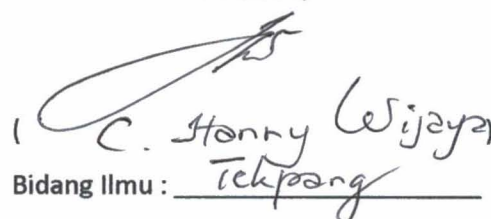 ( C. Hanny Wijaya)
Bidang Ilmu : Tekpang